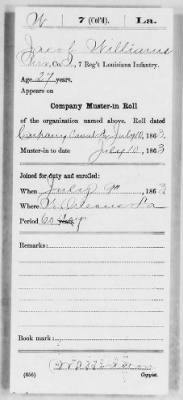 W 7 (Col'd). La.
Jacob Williams
Co. , 7 Reg't Louisiana Infantry.
Age 27 years.
Appears on
Company Muster-in Roll
of the organization named above. Roll dated
July 10, 1863
Muster-in to date July 10, 1863
Joined for duty and enrolled:
When July 9", 1863
Where N. Orleans La
Period 60 days years
Remarks:
Book mark:
(356) Copyist.